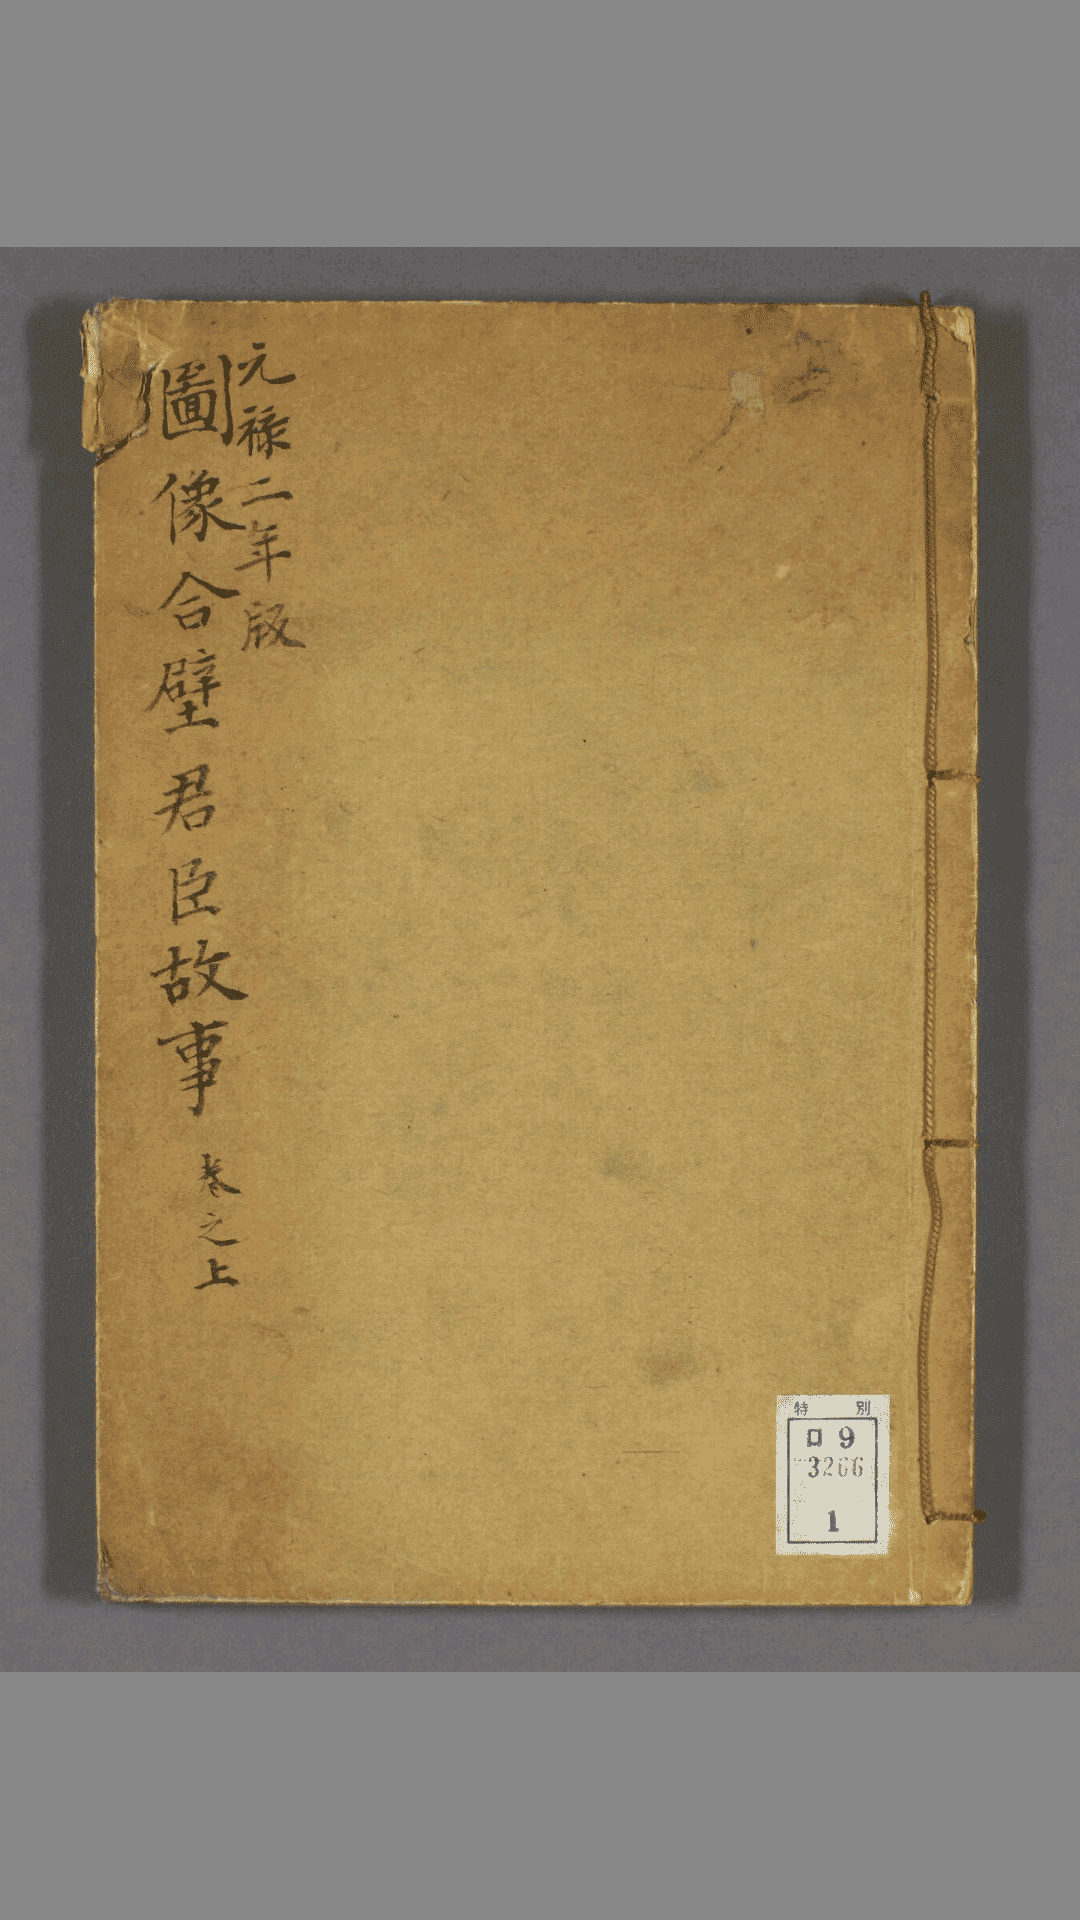 元禄二年版
圖像合壁君臣故事
巻之上
上
特別
ロ9
3266
1